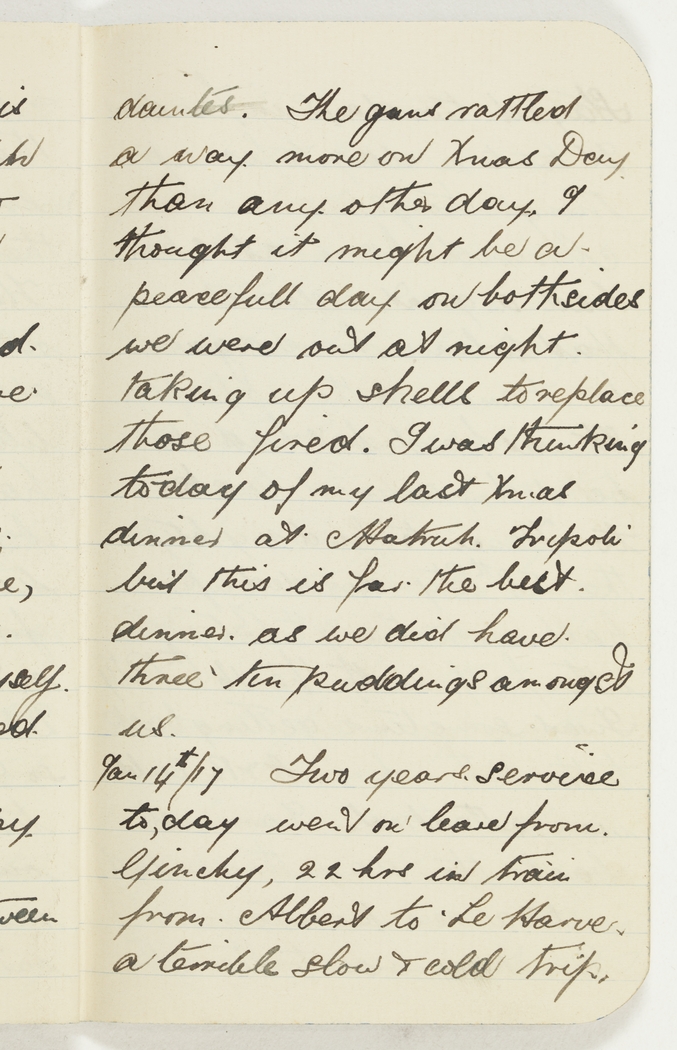 is
d.
e,
self.
ed
ay.
ween
dainties. The guns rattled
a way more on Xmas Day
than any other day, I
thought it might be a
peacefull day on bothsides
we were out at night.
taking up shells to replace
those fired. I was thinking
today of my last Xmas
dinner at Matruh. Tripoli
but this is far the best.
dinner. as we did have.
three tin puddings amongst
us.
Jan 14th/17 Two years service
to,day went on leave from.
Ginchy, 22 hrs in train
from. Albert to Le Harve.
a terrible slow & cold trip.